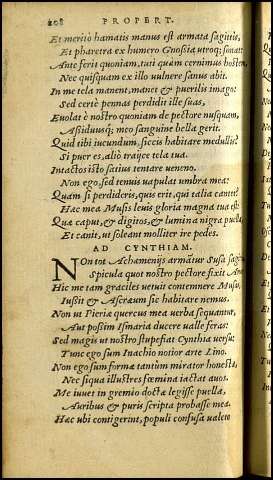 208 PROPERT.
Et merito hamatis manus est armata sagittis,
Et pharetra ex humero Gnosia utroq; sonat:
Ante ferit quoniam, tuti quàm cernimus hostem,
Nec quisquam ex illo vulnere sanus abit.
In me tela manent, manet & puerilis imago:
Sed certè pennas perdidit ille suas,
Euolat è nostro quoniam de pectore nusquam,
Assiduusq; meo sanguine bella gerit.
Quid tibi iucundum, siccis habitare medullis?
Si puer es, aliò traijce tela tua.
Intactos isto satius tentare veneno.
Non ego, sed tenuis vapulat umbra mea:
Quam si perdideris, quis erit, qui talia cantet?
Hæc mea Musa leuis gloria magna tua est:
Quæ caput, & digitos, & lumina nigra puellæ,
Et canit, ut soleant molliter ire pedes.
AD CYNTHIAM.
NOn tot Achæmenijs armātur Susa sagittis,
Spicula quot nostro pectore fixit Amor.
Hic me tam graciles vetuit contemnere Musas,
Iussit & Ascræum sic habitare nemus.
Non ut Pieriæ quercus mea verba sequantur,
Aut possim Ismaria ducere valle feras:
Sed magis ut nostro stupefiat Cynthia versu:
Tunc ego sum Inachio notior arte Lino.
Non ego sum formæ tantùm mirator honestæ,
Nec siqua illustres fœmina iactat auos.
Me iuuet in gremio doctæ legisse puellæ,
Auribus & puris scripta probasse mea.
Hæc ubi contigerint, populi confusa valeto